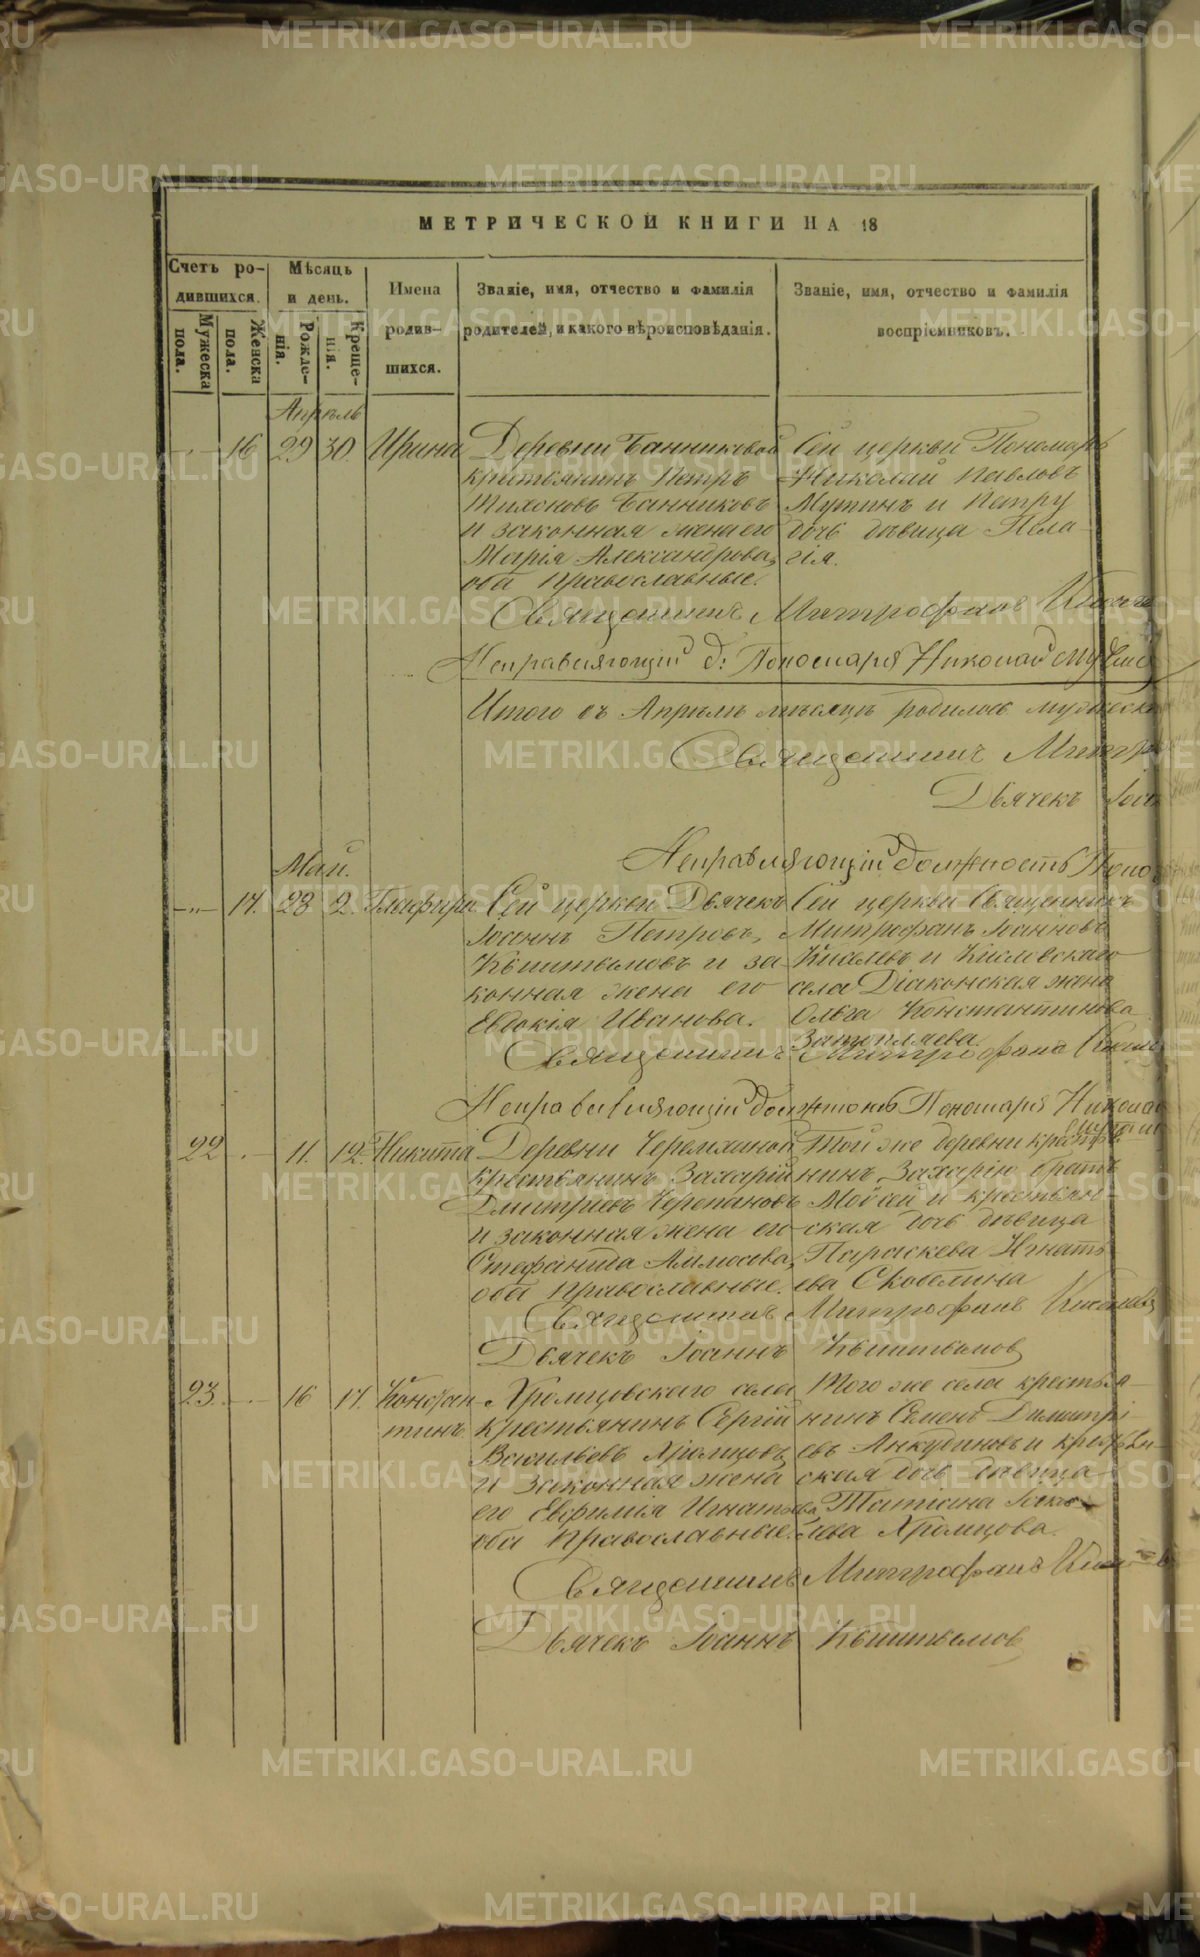 МЕТРИЧЕСКОЙ КНИГИ НА 18
Счетъ ро-
дившихся.
Мужеска пола.
Женска пола.
Мѣсяць
и день.
Рожде-
нія.
Креще-
нія.
Имена
родив-
шихся.
Званіе, имя, отчество и фамилія
родителей, и какого вѣроисповѣданія.
Званіе, имя, отчество и фамилія
воспріемниковъ.
Апрѣль
16 29 30. Ирина
Деревни Банниковой
крестьянинъ Петръ
Тихоновъ Банниковъ
и законная жена его
Марія Александрова,
оба православные.
Сей церкви Пономарь
Николай Павловъ
Мутинъ и Петру
дочь дѣвица Пела-
гія.
Священникъ Митрофанъ
Исправляющій д: Пономаря Николай
Итого въ Апрѣлѣ мѣсяцѣ родилось мужеска
Священникъ
Дьячекъ
Исправляющій должность
Май.
-„- 17. 28 2. Глафира
Сей церкви Дьячекъ
Іоаннъ Петровъ,
и за-
конная жена его
Евдокія Иванова.
Сей церкви Священникъ
Митрофанъ Іоанновъ
Кисловскаго
села Діаконская жена
Ольга Константинова
Затопляева.
Священникъ Митрофанъ
Исправляющій должность Пономаря Николай
22 -„- 11. 12. Никита
Деревни Черемхиной
крестьянинъ Захарій
Дмитріевъ Черепановъ
и законная жена его
Стефанида Аммосова,
оба православные.
Той же деревни крестья-
нинъ Захарію братъ
Мокай и крестьян-
ская дочь дѣвица
Параскева Игнать-
ева Скобелина
Священникъ Митрофанъ
Дьячекъ Іоаннъ
23. -„- 16 17. Констан-
тинъ
Хромцовскаго села
крестьянинъ Сергій
Васильевъ Хромцовъ
и законная жена
его Евфимія Игнатьева,
оба православные.
Того же села крестья-
нинъ Семенъ Димитрі-
евъ Анкудиновъ и крестьян-
ская дочь дѣвица
Татіана Іаков-
лева Хромцова.
Священникъ Митрофанъ
Дьячекъ Іоаннъ
METRIKI.GASO-URAL.RU